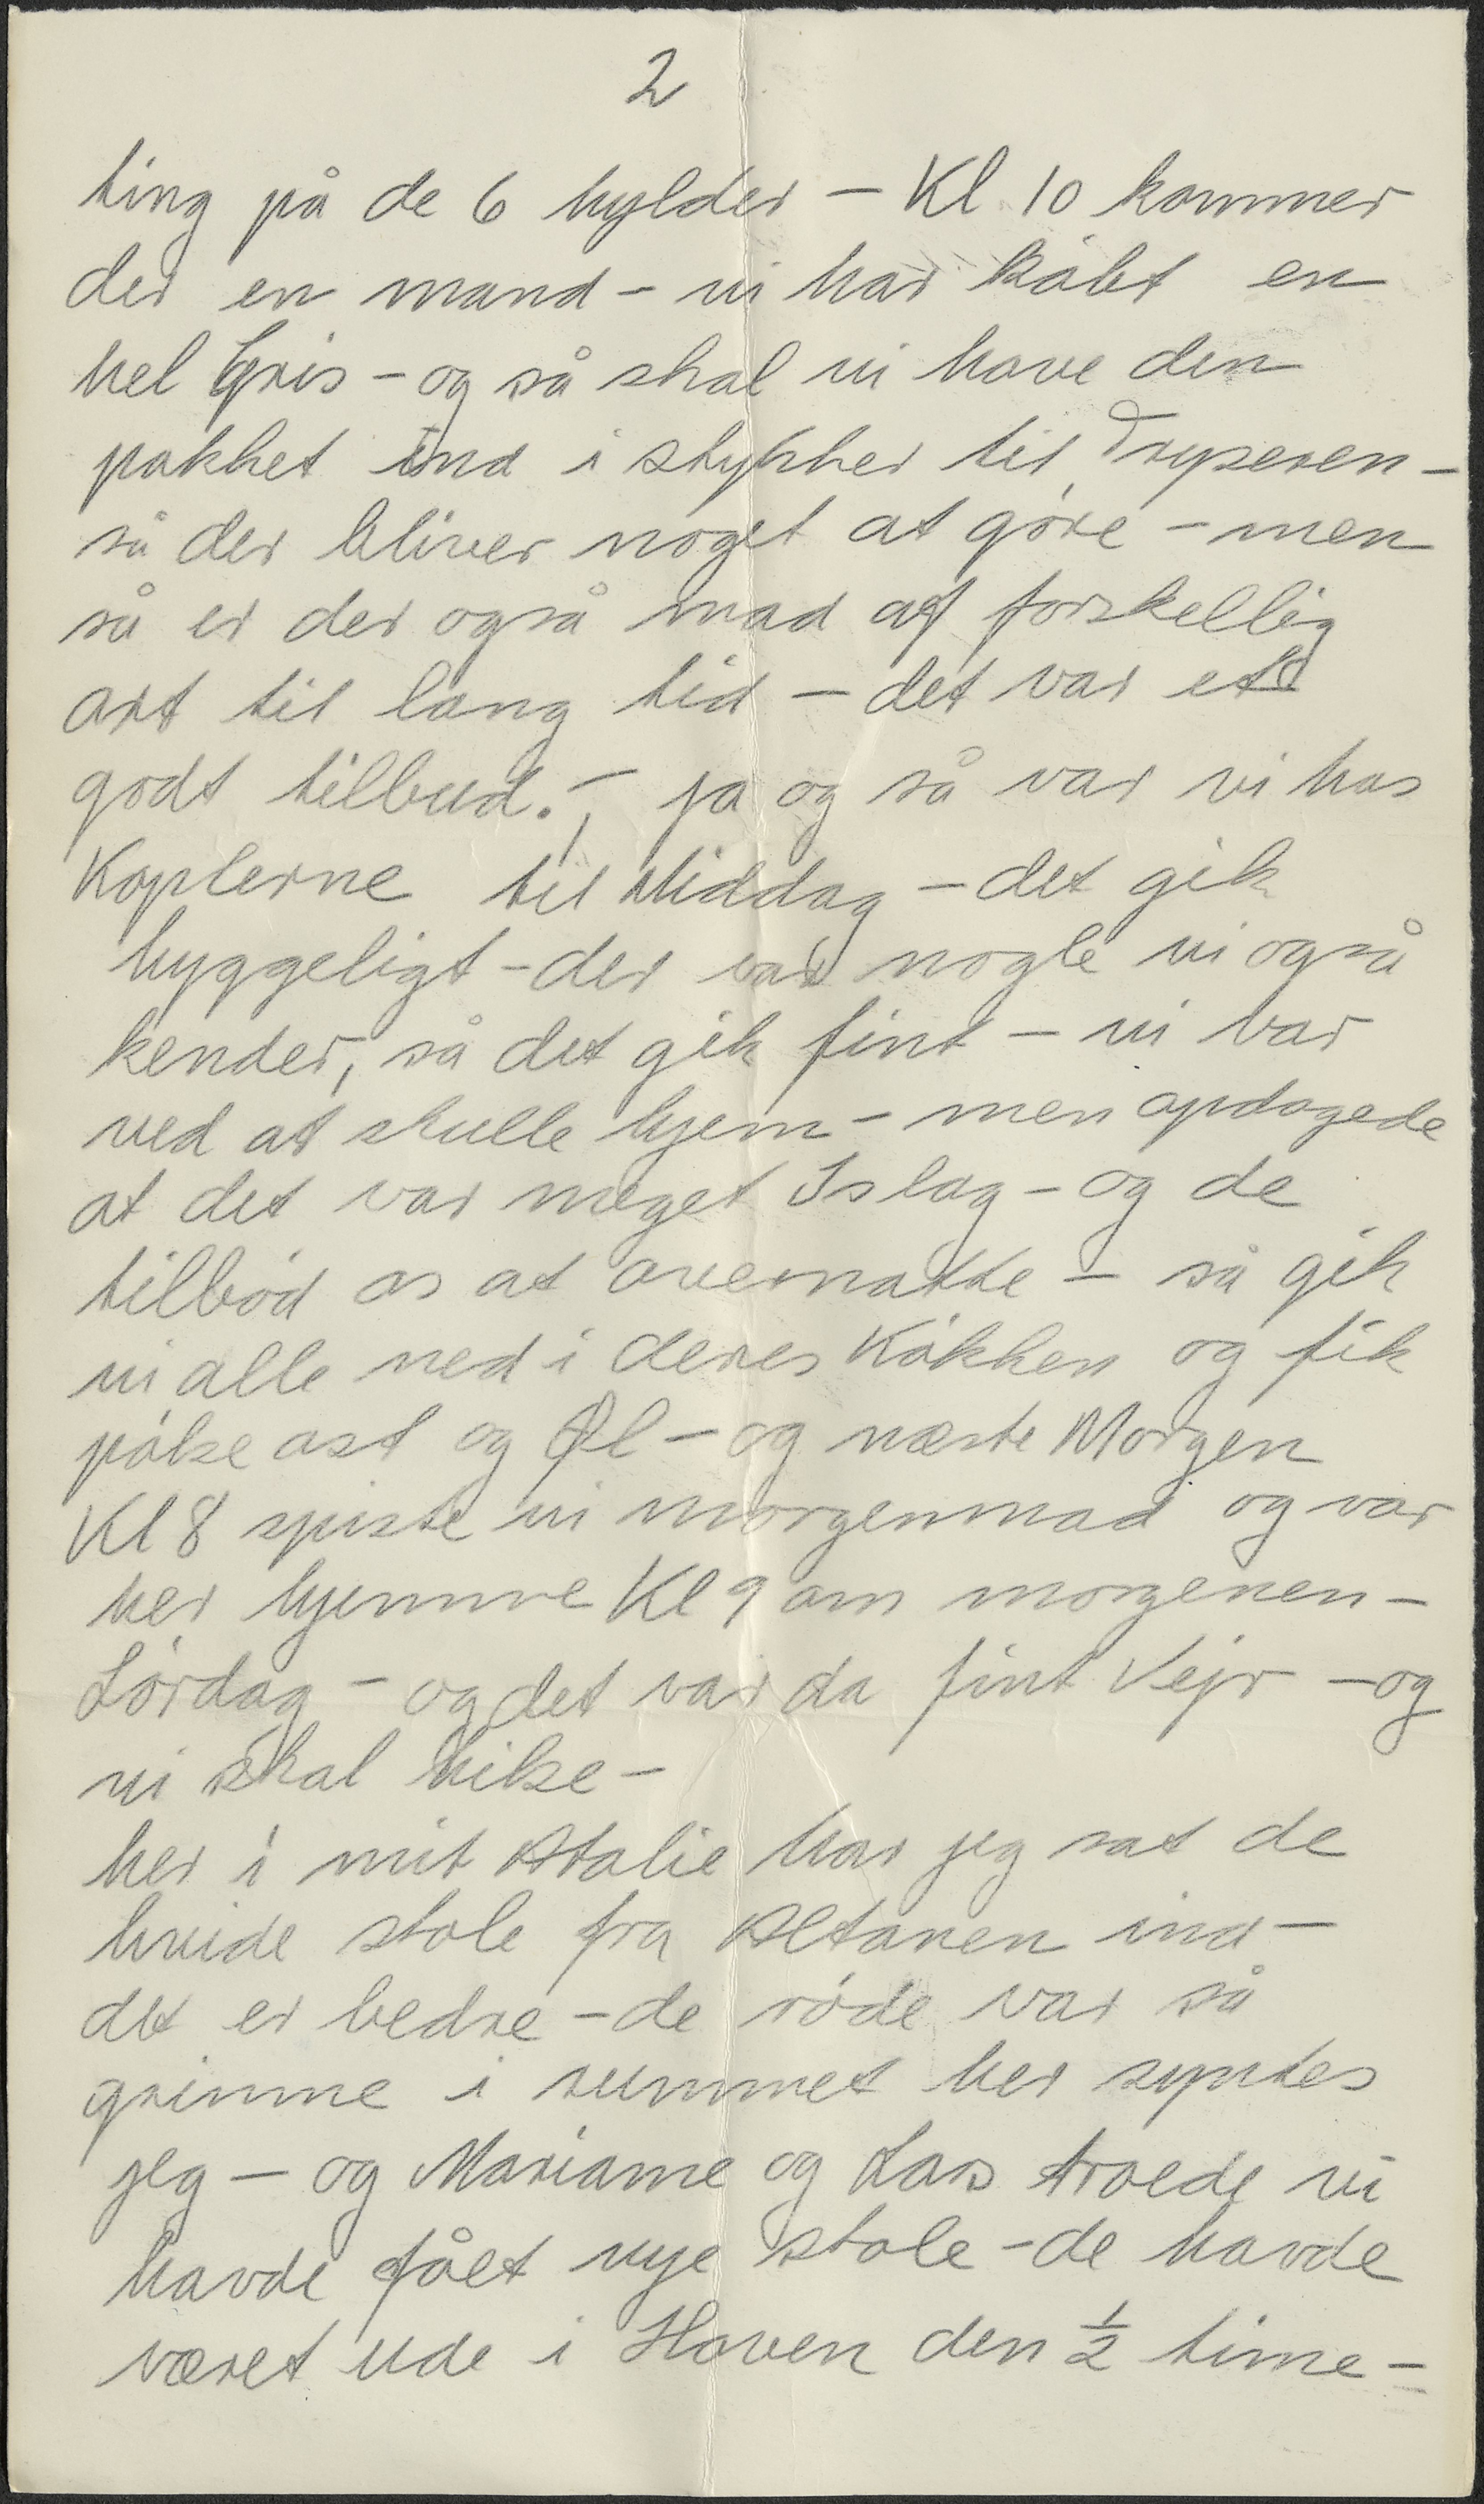 2
ting på de 6 hylder – Kl. 10 kommer
der en mand – vi har købt en
hel Gris – og så skal vi have den
pakket ind i stykker til Fryseren –
så der bliver noget at gøre – men
så er der også mad af forskellig
art til lang tid – det var et
godt tilbud. – ja og så var vi hos
Koplerne til Middag – det gik
hyggeligt – der var nogle vi også
kender, så det gik fint – vi var
ved at skulle hjem – men opdagede
at det var meget Islag – og de
tilbød os at overnatte – så gik
vi alle ned i deres Køkken og fik
pølse ost og Øl – og næste Morgen
Kl 8 spiste vi morgenmad og var
her hjemme Kl 9 om morgenen –
Lørdag – og det var da fint Vejr – og
vi skal hilse –
her i mit Atalie har jeg sat de
hvide stole fra Altanen ind –
det er bedre – de røde var så
grimme i rummet her syntes
jeg – og Marianne og Lars troede vi
havde fået nye stole – de havde
været ude i Haven den ½ time –